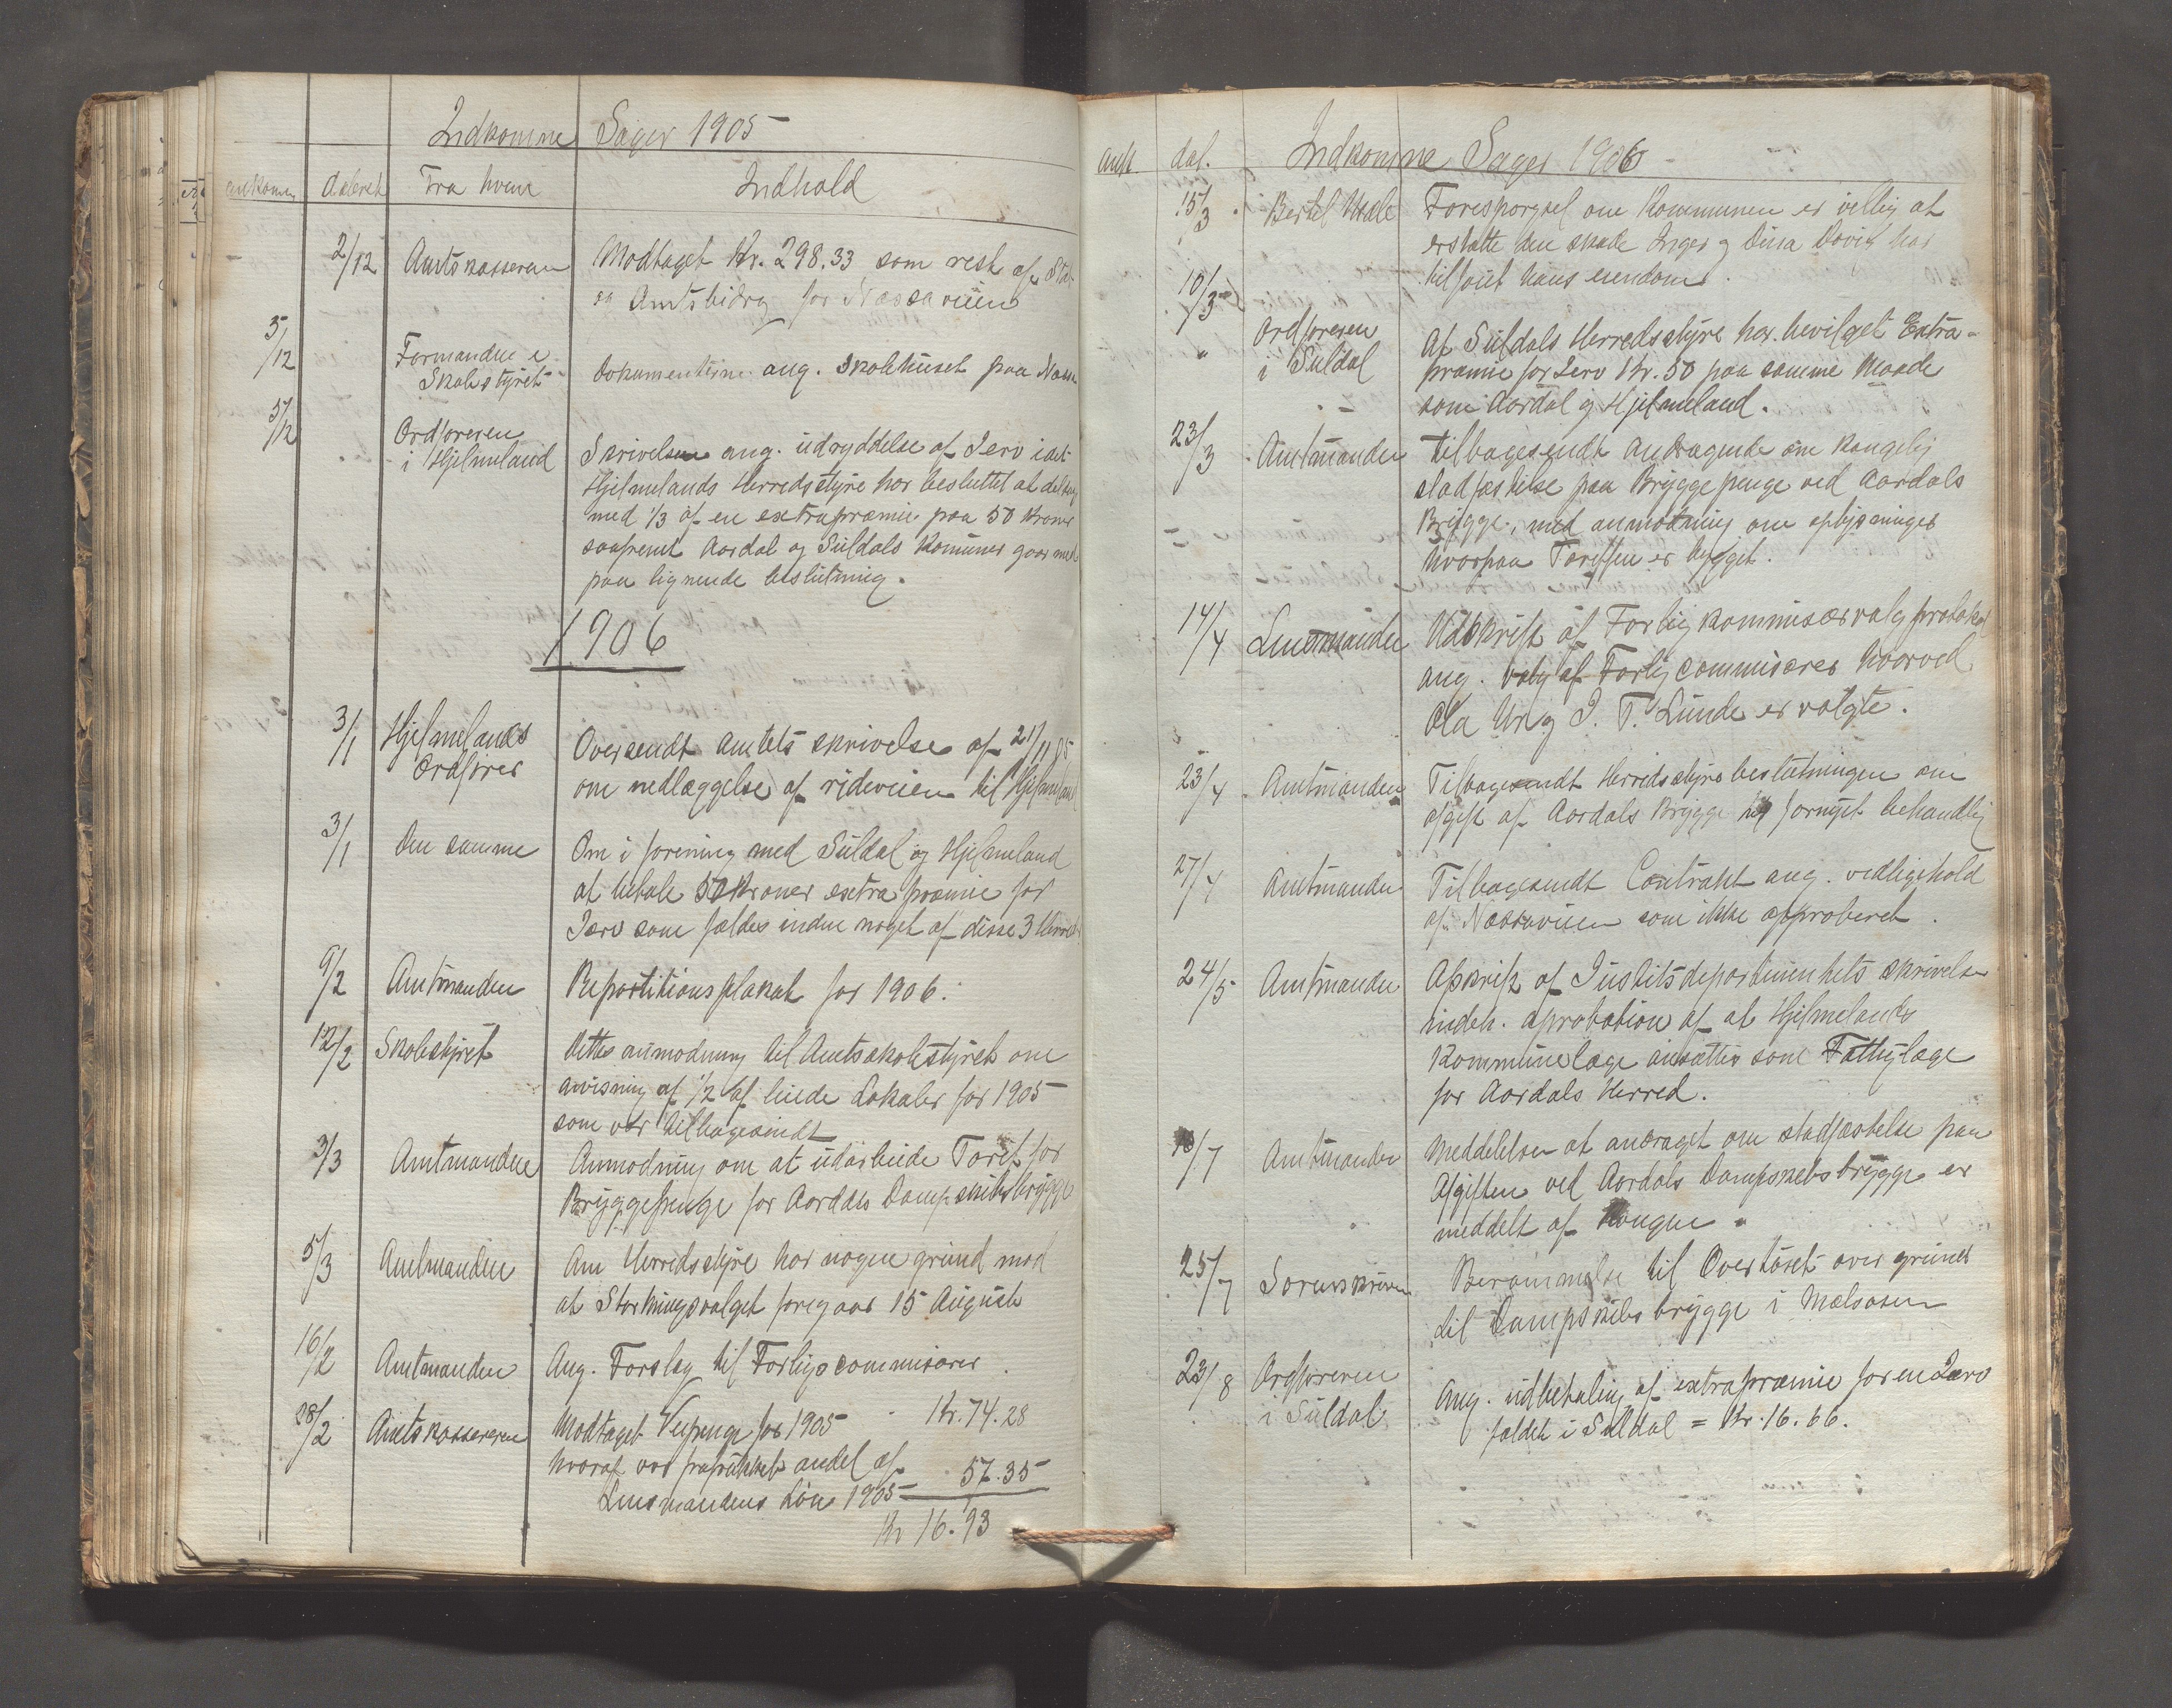 Indkomne Sager 1905
ankomne dateret Fra hvem Indhold
2/12 Amtskasseren Modtaget Kr. 298.33 som rest af
Amtsbidrag for Nessaveien
5/12 Formanden i Dokumenterne ang. Skolehuset paa
Skolestyret
5/12 Ordføreren
i Hjelmeland Skrivelse ang. udryddelse af Jerv idet
Hjelmelands Herredsstyre har besluttet at deltage
med 1/3 af en extrapræmie paa 50 Kroner
saafremt Aardal og Suldals Komuner gaar med
paa lignende beslutning.
1906
3/1 Hjelmelands Oversendt amtets skrivelse af 21/11 05
Ordfører om nedlæggelse af rideveien til Hjelmeland
3/1 Den samme Om i forening med Suldal og Hjelmeland
at betale 50 Kroner extra præmie for
Jerv som fældes inden noget af disse 3 Herred
9/2 Amtmanden Repartitionsplakat for 1906.
12/2 Skolestyret Dettes anmodning til Amtsskolestyret om
anvisning af 1/2 af leiede Lokaler for 1905
som var tilbagesendt
3/3 Amtmanden Anmodning om at udarbeide Tarif for
Bryggepenge for Aardals Dampskibsbrygge
5/3 Amtmanden Om Herredsstyre har nogen grund mod
at Storthingsvalget foregaar 15 August
16/2 Amtmanden Ang. Forslag til Forligscommisærer
28/2 Amtskassereren Modtaget Veipenge for 1905 Kr. 74.28
hvoraf var fratrukket andel af
Lensmandens Løn 1905 57.35
Kr 16.93
ank. dat. Indkomne Sager 1906
15/3 Bertel Forespørgsel om Kommunen er villig at
erstatte den skade Inger og Dina har
tilføiet hans eiendom.
10/3
" Ordføreren
i Suldal At Suldals Herredsstyre har bevilget Extra-
præmie for Jerv Kr. 50 paa samme Maade
som Aardal og Hjelmeland.
23/3 Amtmanden Tilbagesendt Andragende om kongelig
stadfæstelse paa Bryggepenge ved Aardals
Brygge, med anmodning om oplysninger
hvorpaa Tariffen er bygget.
14/4 Lensmanden Udskrift af Forligkommisærvalgprotokol
ang. valg af Forligcommisærer hvorved
Ola og J. T. Lunde er valgte.
23/4 Amtmanden Tilbagesendt Herredsstyrebeslutningen om
afgift af Aardals Brygge til fornyet behandlig
27/4 Amtmanden Tilbagesendt Contrakt ang. vedligehold
af Nessaveien som ikke approberet.
24/5 Amtmanden Afskrift af Justitsdepartementets skrivelse
indeh. aprobation af at Hjelmelands
Kommunelæge ansættes som Fattiglæge
for Aardals Herred.
/7 Amtmanden Meddelelse at andraget om stadfæstelse paa
Afgiften ved Aardals Dampskibsbrygge er
meddelt af Kongen.
25/7 Sorenskriveren Berammelse til Overtaxt over grund
til Dampskibsbrygge i Mælsosen
23/8 Ordføreren
i Suldal Ang. udbetaling af extrapræmie for en Jærv
fældet i Suldal = Kr. 16.66.